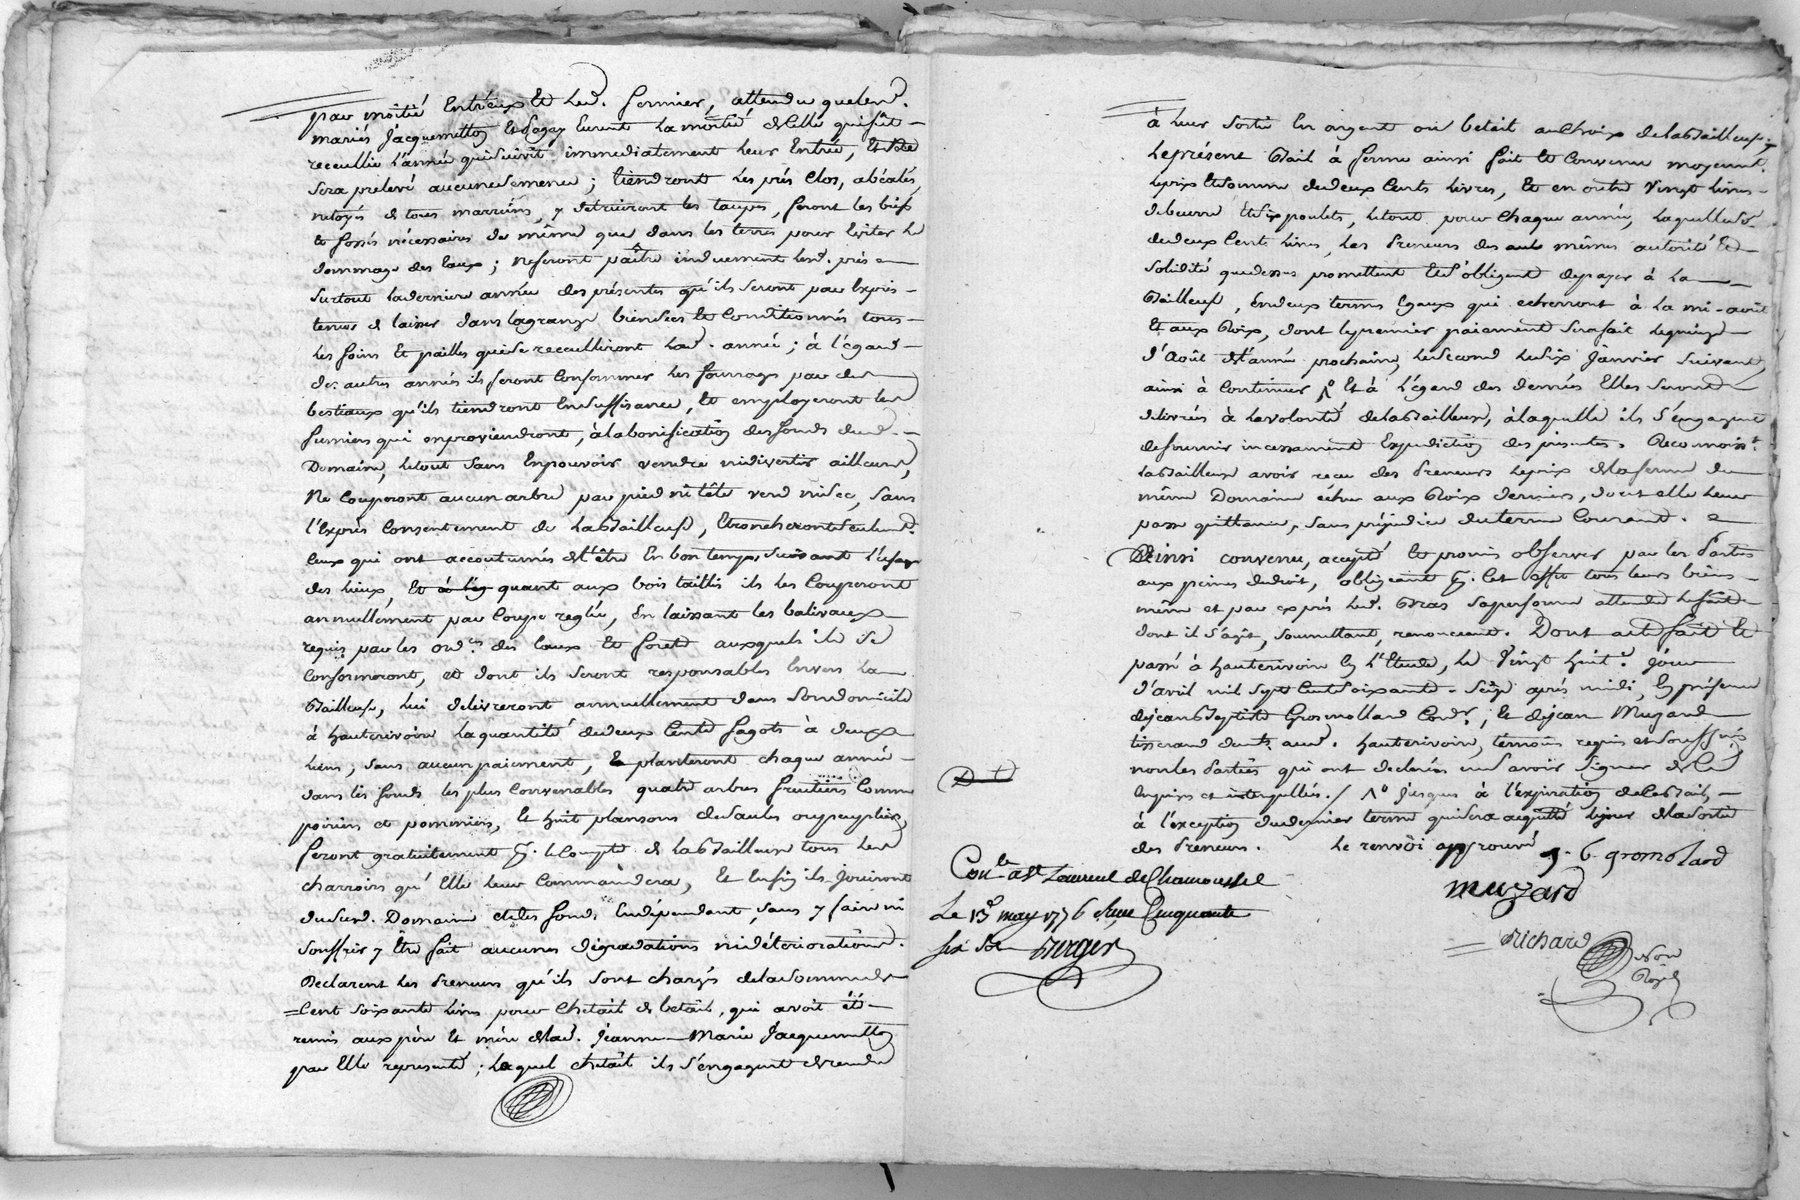 par moitié Entr'eux Et led. fermier, attendu quelesd.
mariés Jacquemetton Et Lagay Eurent la moitié de celle qui fut
receuillie l'année qui suivit immediatement leur Entrée, Et
sera prelevé aucune semence; tiendront les prés clos,
netoyés de tous marreins, y detruiront les taupes, feront les bies
et fossés nécessaires de même que dans les terres pour Eviter le
dommage des Eaux; ne feront paître induement lesd. prés
surtout la derniere année des présentes qu'ils seront par Exprès
tenus de laisser dans la grange bien secs Et Conditionnés tous
les foins Et pailles qui se receuilliront lad. année; à l'égard
des autres années ils feront Consommer les fourrages par des
bestiaux qu'ils tiendront En suffisance, Et employeront les
fumiers qui en proviendront, à la bonification des fonds dud.
Domaine, le tout sans En pouvoir vendre ni divertir ailleurs,
Ne Couperont aucun arbre par pied ni tête verd ni sec, sans
l'Exprès Consentement de la Bailleuse, Etroncheront seulemt.
Ceux qui ont accoutumés de l'être En bon temps, suivant l'usage
des lieux, Et à l'eg quant aux bois taillis ils les Couperont
annuellement par Coupe reglée, En laissant les balivaux
requis par les ordces. des Eaux Et forets auxquels ils se
Conformeront, et dont ils seront responsables Envers la
Bailleuse, lui delivreront annuellement dans son domicile
à hauterivoire la quantité de deux Cents fagots à deux
liens, sans aucun paiement, Et planteront chaque année
dans les fonds les plus Convenables quatre arbres fruitiers Comme
poiriers et pommiers, Et huit plansons de saules ou peupliers,
feront gratuitement pr. le Compte de la Bailleuse tous les
charrois qu'Elle leur Commandera, Et Enfin ils Jouiront
dudud. Domaine et des fonds En dépendant, sans y faire ni
souffrir y Être fait aucunes dégradations ni détériorations.
Declarent les Preneurs qu'ils sont chargés de la somme de
Cent soixante livres pour Cheptail de betail, qui avoit été
remis aux père Et mère de lad. Jeanne Marie Jacquemetton
par Elle representé; lequel cheptail ils s'engagent de rendre
à leur sortie En argent ou betail au Choix de la Bailleuse.
Le présent Bail à ferme ainsi fait Et Convenu moyenant
le prix Et somme de deux Cents livres, Et en outre vingt livres
de beurre Et six poulets, le tout pour chaque année, laquelle se.
de deux Cents livres, les Preneurs des mêmes autorité Et
solidité que dessus promettent Et s'obligent de payer à la
Bailleuse, En deux termes Egaux qui echerront à la mi-août
Et aux Rois, dont le premier paiement sera fait le quinze
d'Août de l'année prochaine, le second le six Janvier suivant,
ainsi à Continuer Et à l'égard des denrées Elles seront
delivrées à la volonté de la Bailleuse, à laquelle ils s'engagent
de fournir incessament Expedition des presentes. Reconnoist.
la Bailleuse avoir reçu des Preneurs le prix de la ferme du
même Domaine échu aux Rois derniers, dont elle leur
passe quittance, sans préjudice du terme Courant.
Ainsi convenu, accepté Et promis observer par les Parties
aux peines de droit, obligeant pr. Cet effet tous leurs biens
même et par exprès led. Bras sa personne attendu le fait
dont il s'agit, soumettant, renonceant. Dont acte fait Et
passé à hauterivoire En l'Etude, le vingt huite. Jour
d'avril mil sept Cent soixante-seize après midi, En présence
de jean Baptiste Gromollard Cordr., Et de jean Muzard
tisserand dud. hauterivoire, temoins requis et soussignés
non les Parties qui ont declarées ne savoir signer de ce
Enquises et interpellées./ Jusques à l'expiration de ce Bail,
à l'exception du dernier terme qui sera acquitté lejour de la sortie
des Preneurs. le renvoi approuvé
j. b. gromolard
muzard
Conlé a St Laurent de Chamousset
Le 13 may 1776 Reçu Cinquante
six sols Berger
Richard
Nore
Royal